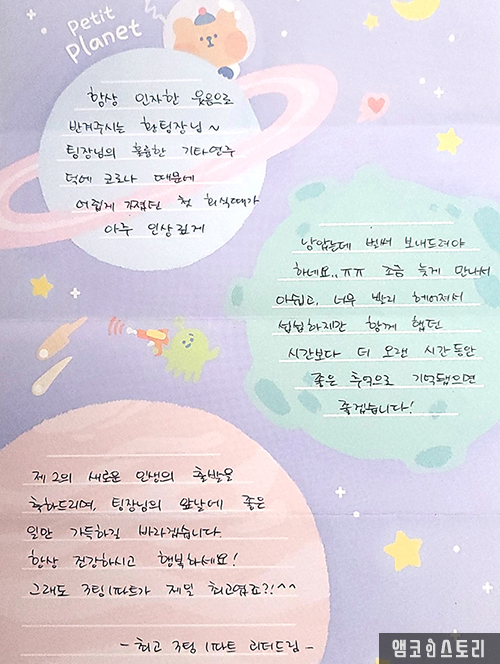 Petit
Planet
항상 인자한 웃음으로
반겨주시는 황팀장님~
팀장님의 훌륭한 기타연주
덕에 코로나 때문에
어렵게 가졌던 첫 회식때가
아주 인상 깊게
남았는데 벌써 보내드려야
하네요..ㅠㅠ 조금 늦게 만나서
아쉽고, 너무 빨리 헤어져서
섭섭하지만 함께 했던
시간보다 더 오랜 시간동안
좋은 추억으로 기억됐으면
좋겠습니다!
제 2의 새로운 인생의 출발을
축하드리며, 팀장님의 앞날에 좋은
일만 가득하길 바라겠습니다.
항상 건강하시고 행복하세요!
그래도 3팀1파트가 제일 최고였죠?!^^
- 최고 3팀 1파트 리더드림 -
앰코인스토리